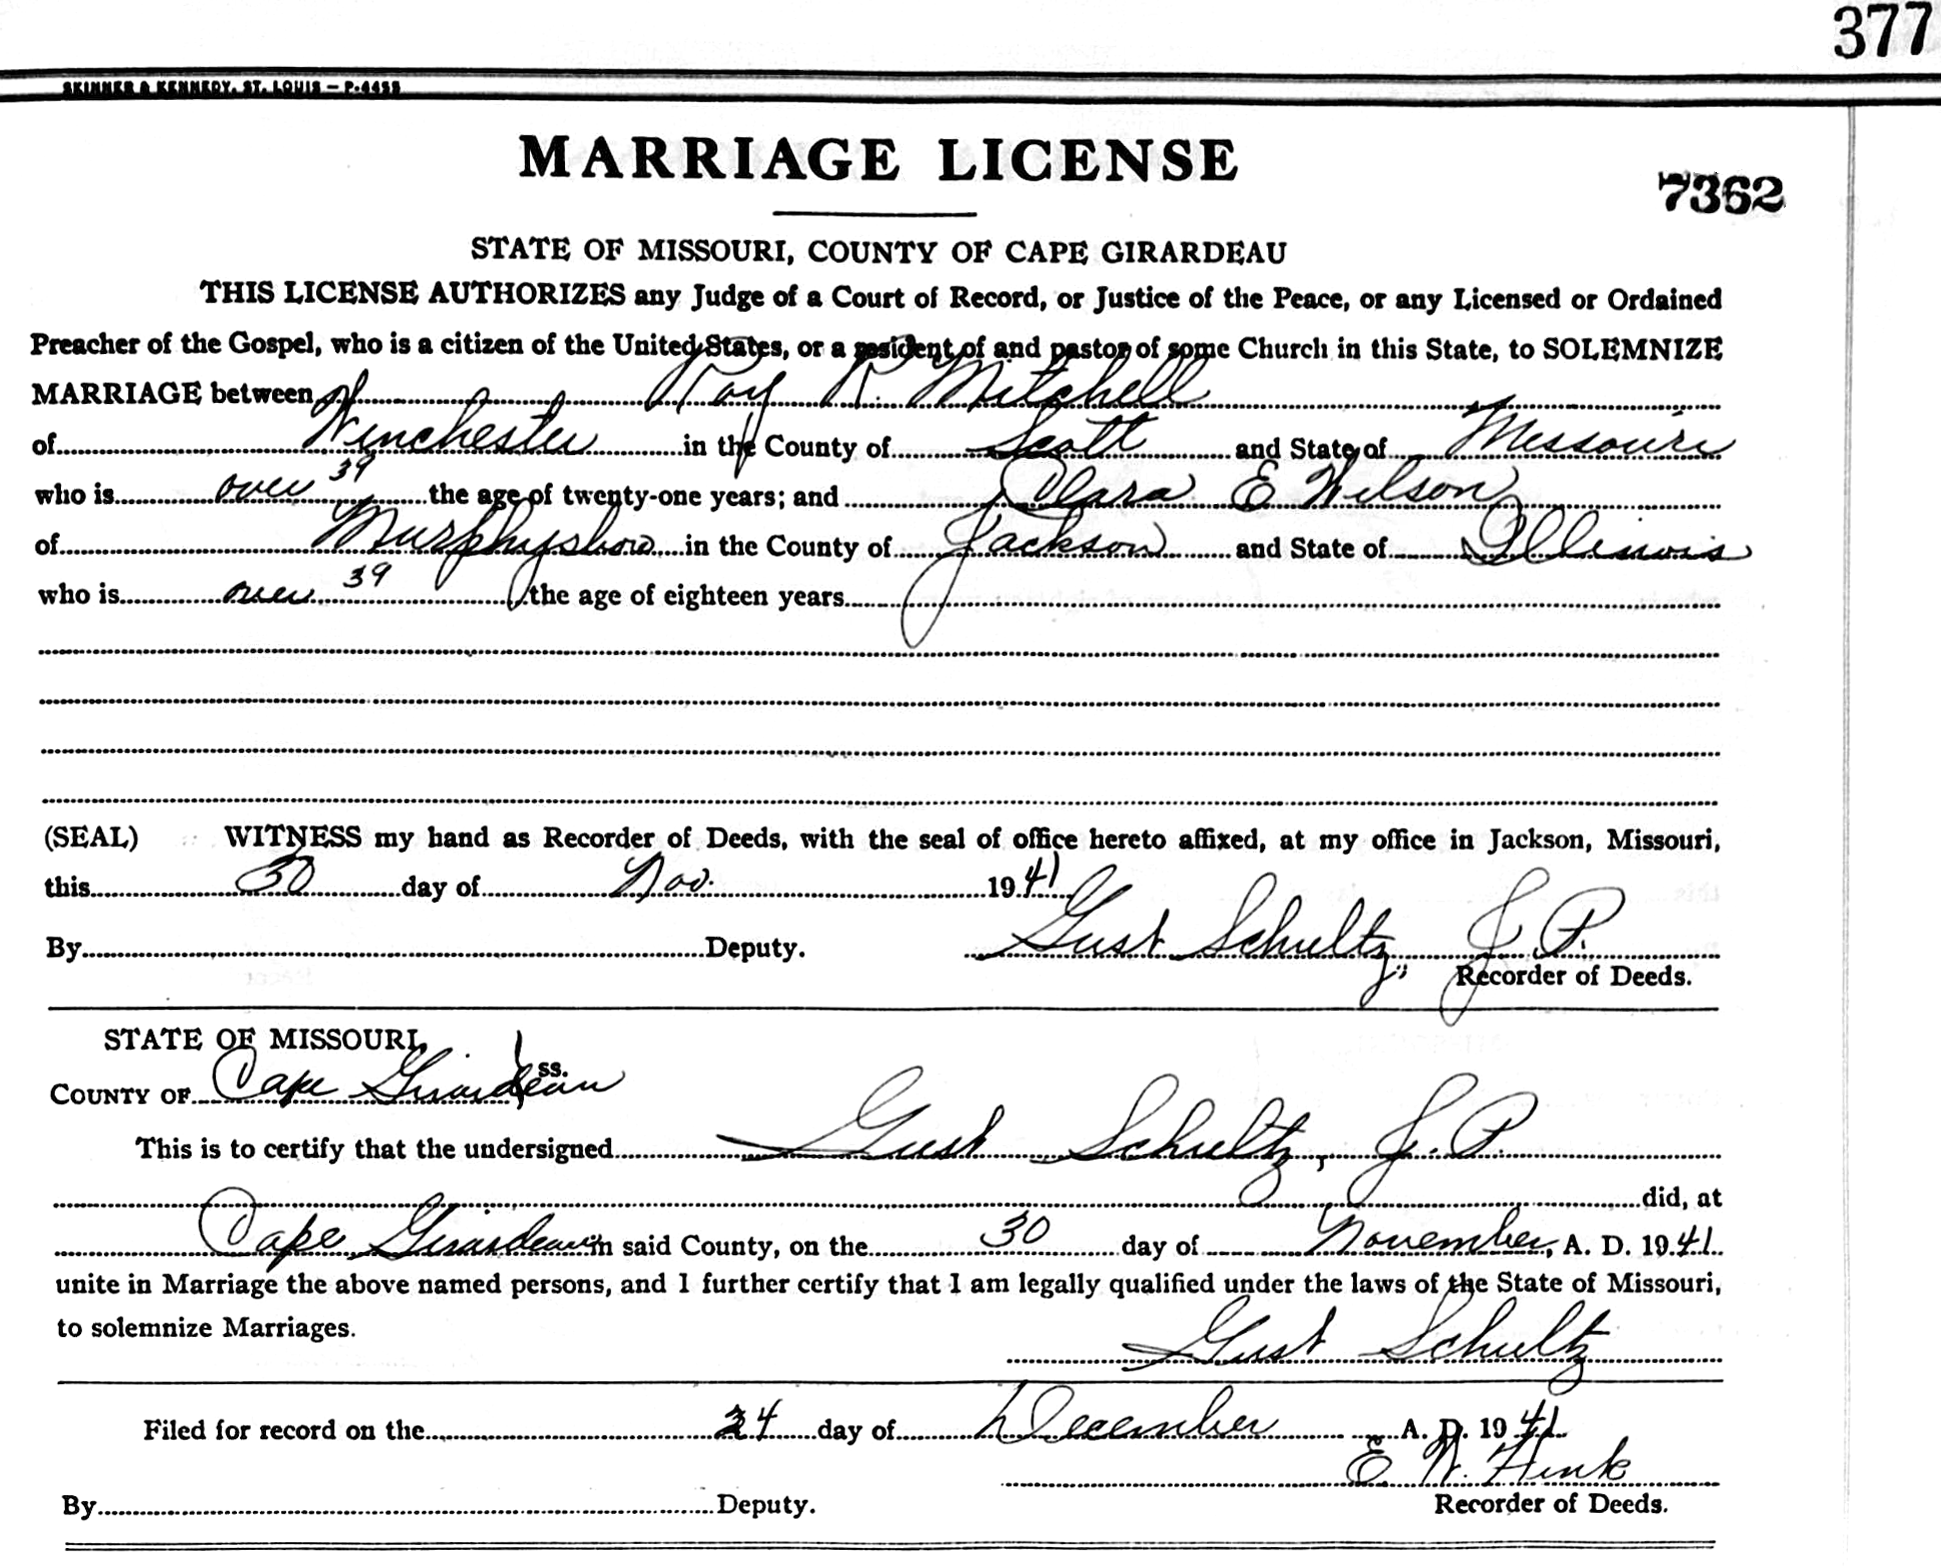 377
SKINNER & KENNEDY, ST. LOUIS — P-4455
MARRIAGE LICENSE
7362
STATE OF MISSOURI, COUNTY OF CAPE GIRARDEAU
THIS LICENSE AUTHORIZES any Judge of a Court of Record, or Justice of the Peace, or any Licensed or Ordained
Preacher of the Gospel, who is a citizen of the United States, or a resident of and pastor of some Church in this State, to SOLEMNIZE
MARRIAGE between Roy R. Mitchell
of Winchester in the County of Scott and State of Missouri
who is over 39 the age of twenty-one years; and Clara E Wilson
of Murphysboro in the County of Jackson and State of Illinois
who is over 39 the age of eighteen years
(SEAL) WITNESS my hand as Recorder of Deeds, with the seal of office hereto affixed, at my office in Jackson, Missouri,
this 30 day of Nov. 1941
By Deputy. Gust Schultz, J.P.
Recorder of Deeds.
STATE OF MISSOURI,
COUNTY OF Cape Girardeau ss.
This is to certify that the undersigned Gust Schultz, J.P.
did, at
Cape Girardeau in said County, on the 30 day of November, A. D. 1941
unite in Marriage the above named persons, and I further certify that I am legally qualified under the laws of the State of Missouri,
to solemnize Marriages.
Gust Schultz
Filed for record on the 24 day of December A. D. 1941
E W. Fink
By Deputy. Recorder of Deeds.